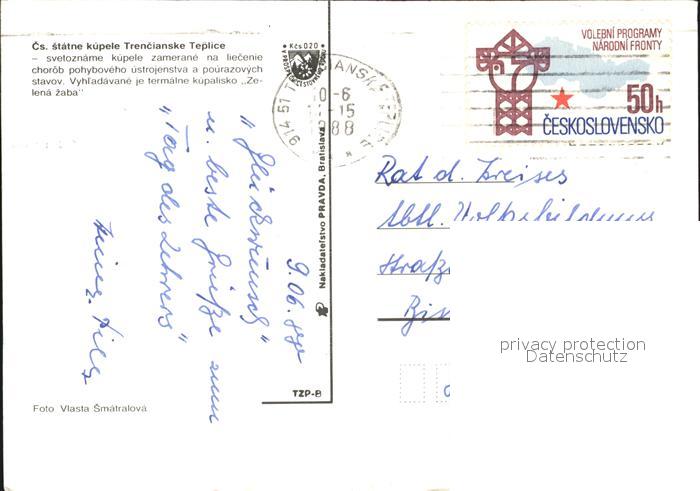 Čs. štátne kúpele Trenčianske Teplice
– svetoznáme kúpele zamerané na liečenie
chorôb pohybového ústrojenstva a poúrazových
stavov. Vyhľadávané je termálne kúpalisko „Ze-
lená žaba"
Kčs 0·20
914 51
-6
-15
88
VOLEBNÍ PROGRAMY
NÁRODNÍ FRONTY
50h
ČESKOSLOVENSKO
9.06.88
„Glückwunsch"
u. beste Grüße zum
„Tag des Lehrers"
Nakladateľstvo PRAVDA, Bratislava
Rat d. Kreises
Abtl.
Straß
TZP-B
Foto Vlasta Šmátralová
privacy protection
Datenschutz